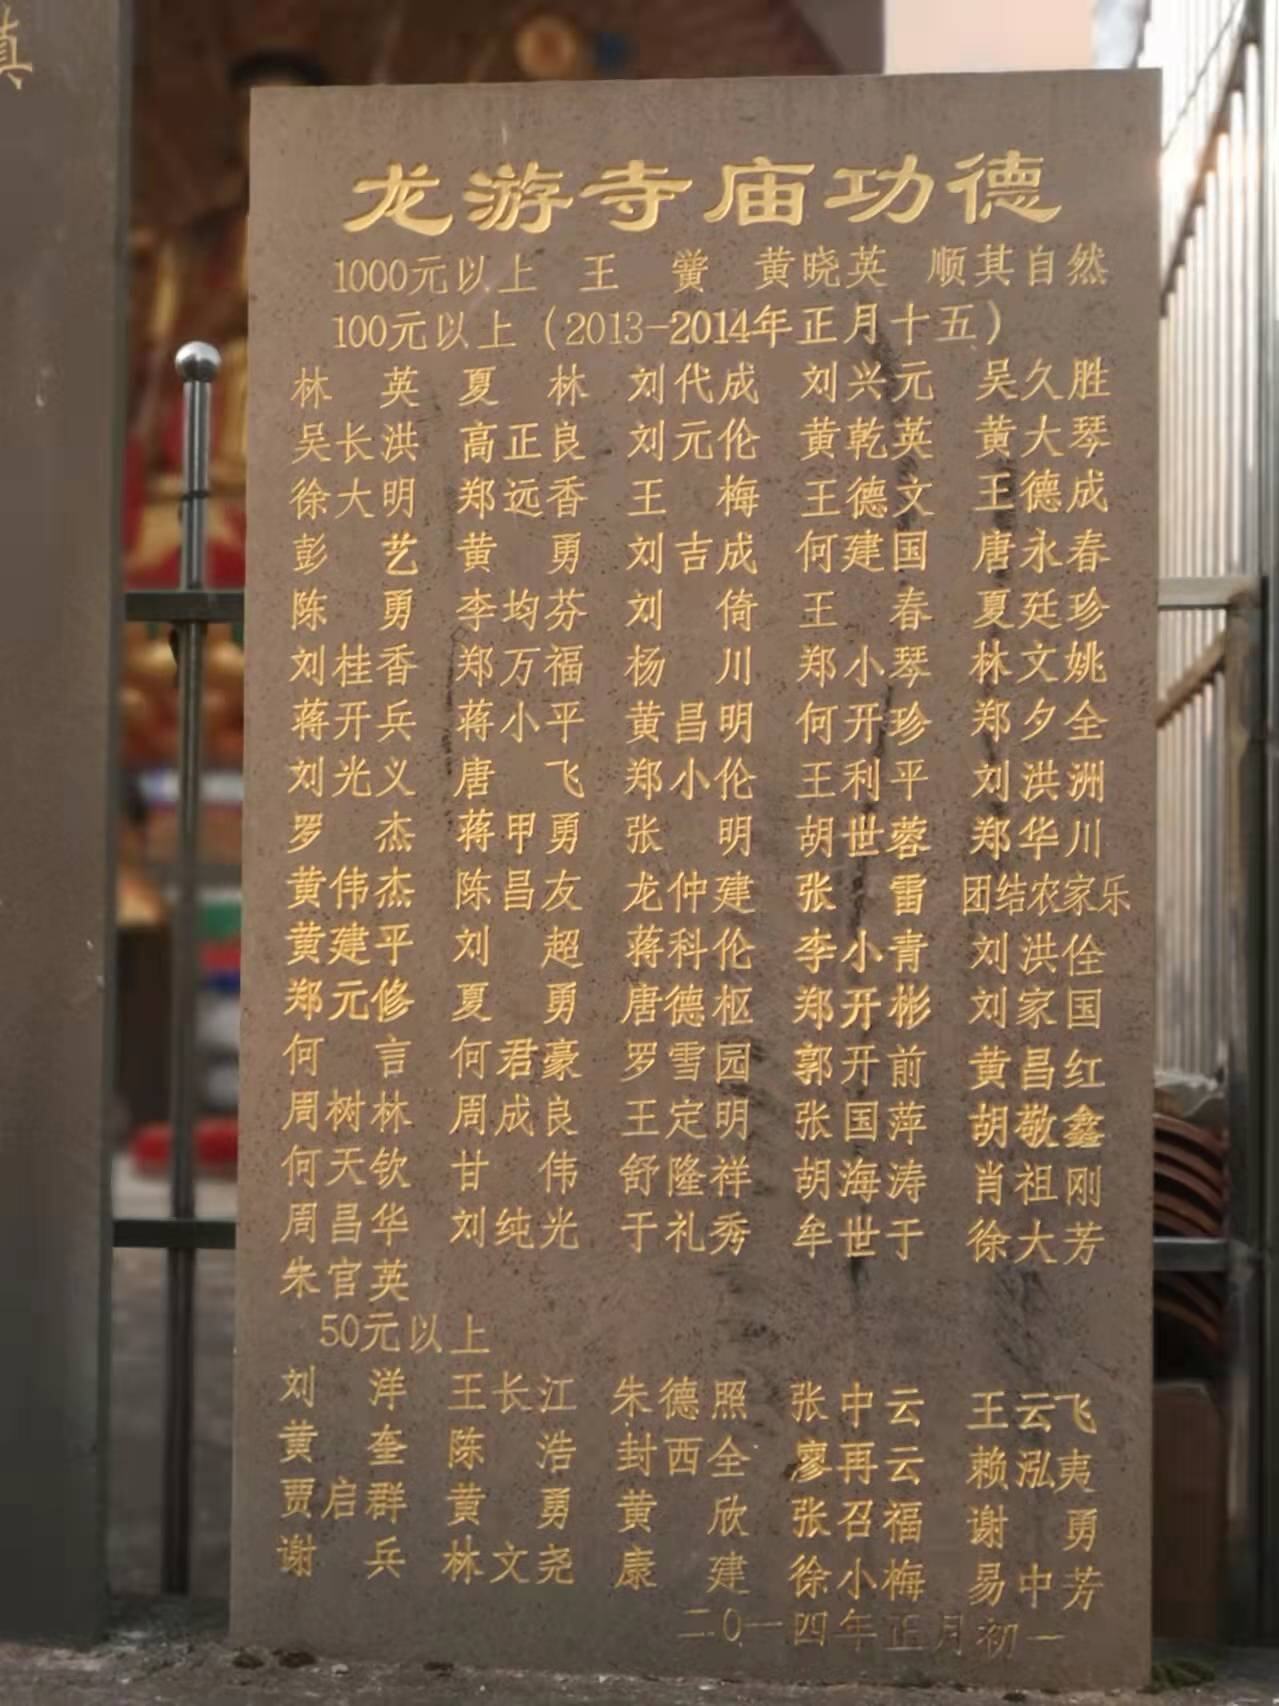 龙游寺庙功德
1000元以上 王 黉 黄晓英 顺其自然
100元以上（2013-2014年正月十五）
林 英 夏 林 刘代成 刘兴元 吴久胜
吴长洪 高正良 刘元伦 黄乾英 黄大琴
徐大明 郑远香 王 梅 王德文 王德成
彭 艺 黄 勇 刘吉成 何建国 唐永春
陈 勇 李均芬 刘 倚 王 春 夏廷珍
刘桂香 郑万福 杨 川 郑小琴 林文姚
蒋开兵 蒋小平 黄昌明 何开珍 郑夕全
刘光义 唐 飞 郑小伦 王利平 刘洪洲
罗 杰 蒋甲勇 张 明 胡世蓉 郑华川
黄伟杰 陈昌友 龙仲建 张 雷 团结农家乐
黄建平 刘 超 蒋科伦 李小青 刘洪佺
郑元修 夏 勇 唐德枢 郑开彬 刘家国
何 言 何君豪 罗雪园 郭开前 黄昌红
周树林 周成良 王定明 张国萍 胡敬鑫
何天钦 甘 伟 舒隆祥 胡海涛 肖祖刚
周昌华 刘纯光 于礼秀 牟世于 徐大芳
朱官英
50元以上
刘 洋 王长江 朱德照 张中云 王云飞
黄 奎 陈 浩 封西全 廖再云 赖泓夷
贾启群 黄 勇 黄 欣 张召福 谢 勇
谢 兵 林文尧 康 建 徐小梅 易中芳
二0一四年正月初一